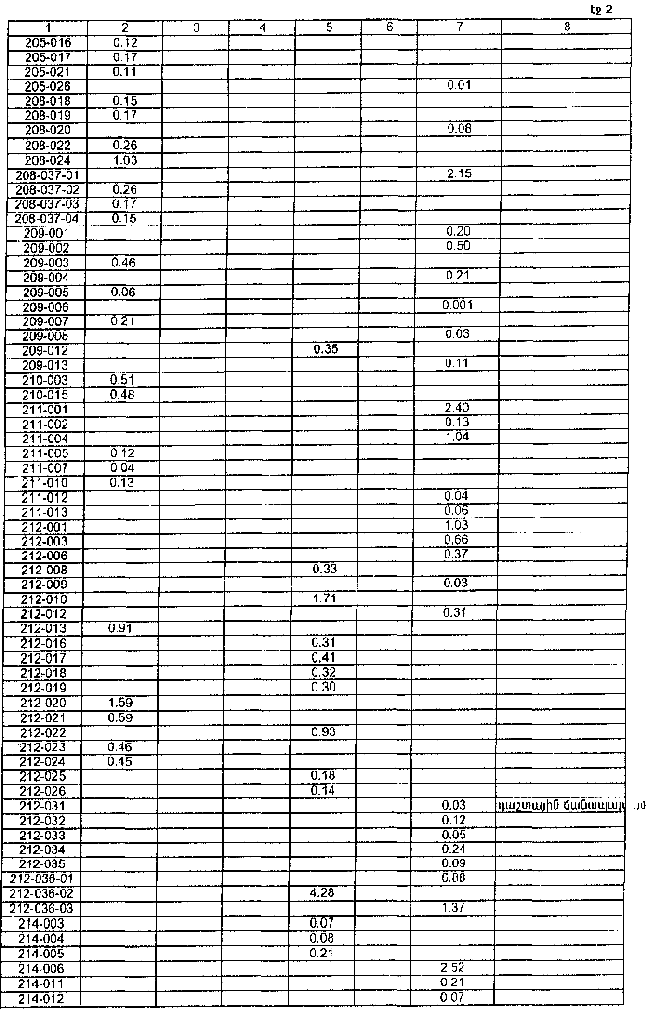 էջ 2
1 2 3 4 5 6 7 8
205-016 0.12
205-017 0.17
205-021 0.11
205-026 0.01
208-018 0.15
208-019 0.17
208-020 0.08
208-022 0.26
208-024 1.03
208-037-01 2.15
208-037-02 0.26
208-037-03 0.17
208-037-04 0.15
209-001 0.20
209-002 0.50
209-003 0.46
209-004 0.21
209-005 0.06
209-006 0.001
209-007 0.21
209-008 0.03
209-012 0.35
209-013 0.11
210-003 0.51
210-015 0.48
211-001 2.40
211-002 0.13
211-004 1.04
211-005 0.12
211-007 0.04
211-010 0.13
211-012 0.04
211-013 0.06
212-001 1.03
212-003 0.66
212-006 0.37
212-008 0.33
212-009 0.03
212-010 1.71
212-012 0.31
212-013 0.91
212-016 0.31
212-017 0.41
212-018 0.32
212-019 0.30
212-020 1.59
212-021 0.59
212-022 0.93
212-023 0.46
212-024 0.45
212-025 0.18
212-026 0.14
212-031 0.03 դաշտային
212-032 0.12
212-033 0.05
212-034 0.24
212-035 0.09
212-036-01
212-036-02 4.28
212-036-03 1.37
214-003 0.07
214-004 0.08
214-005 0.21
214-006 2.52
214-011 0.21
214-012 0.07